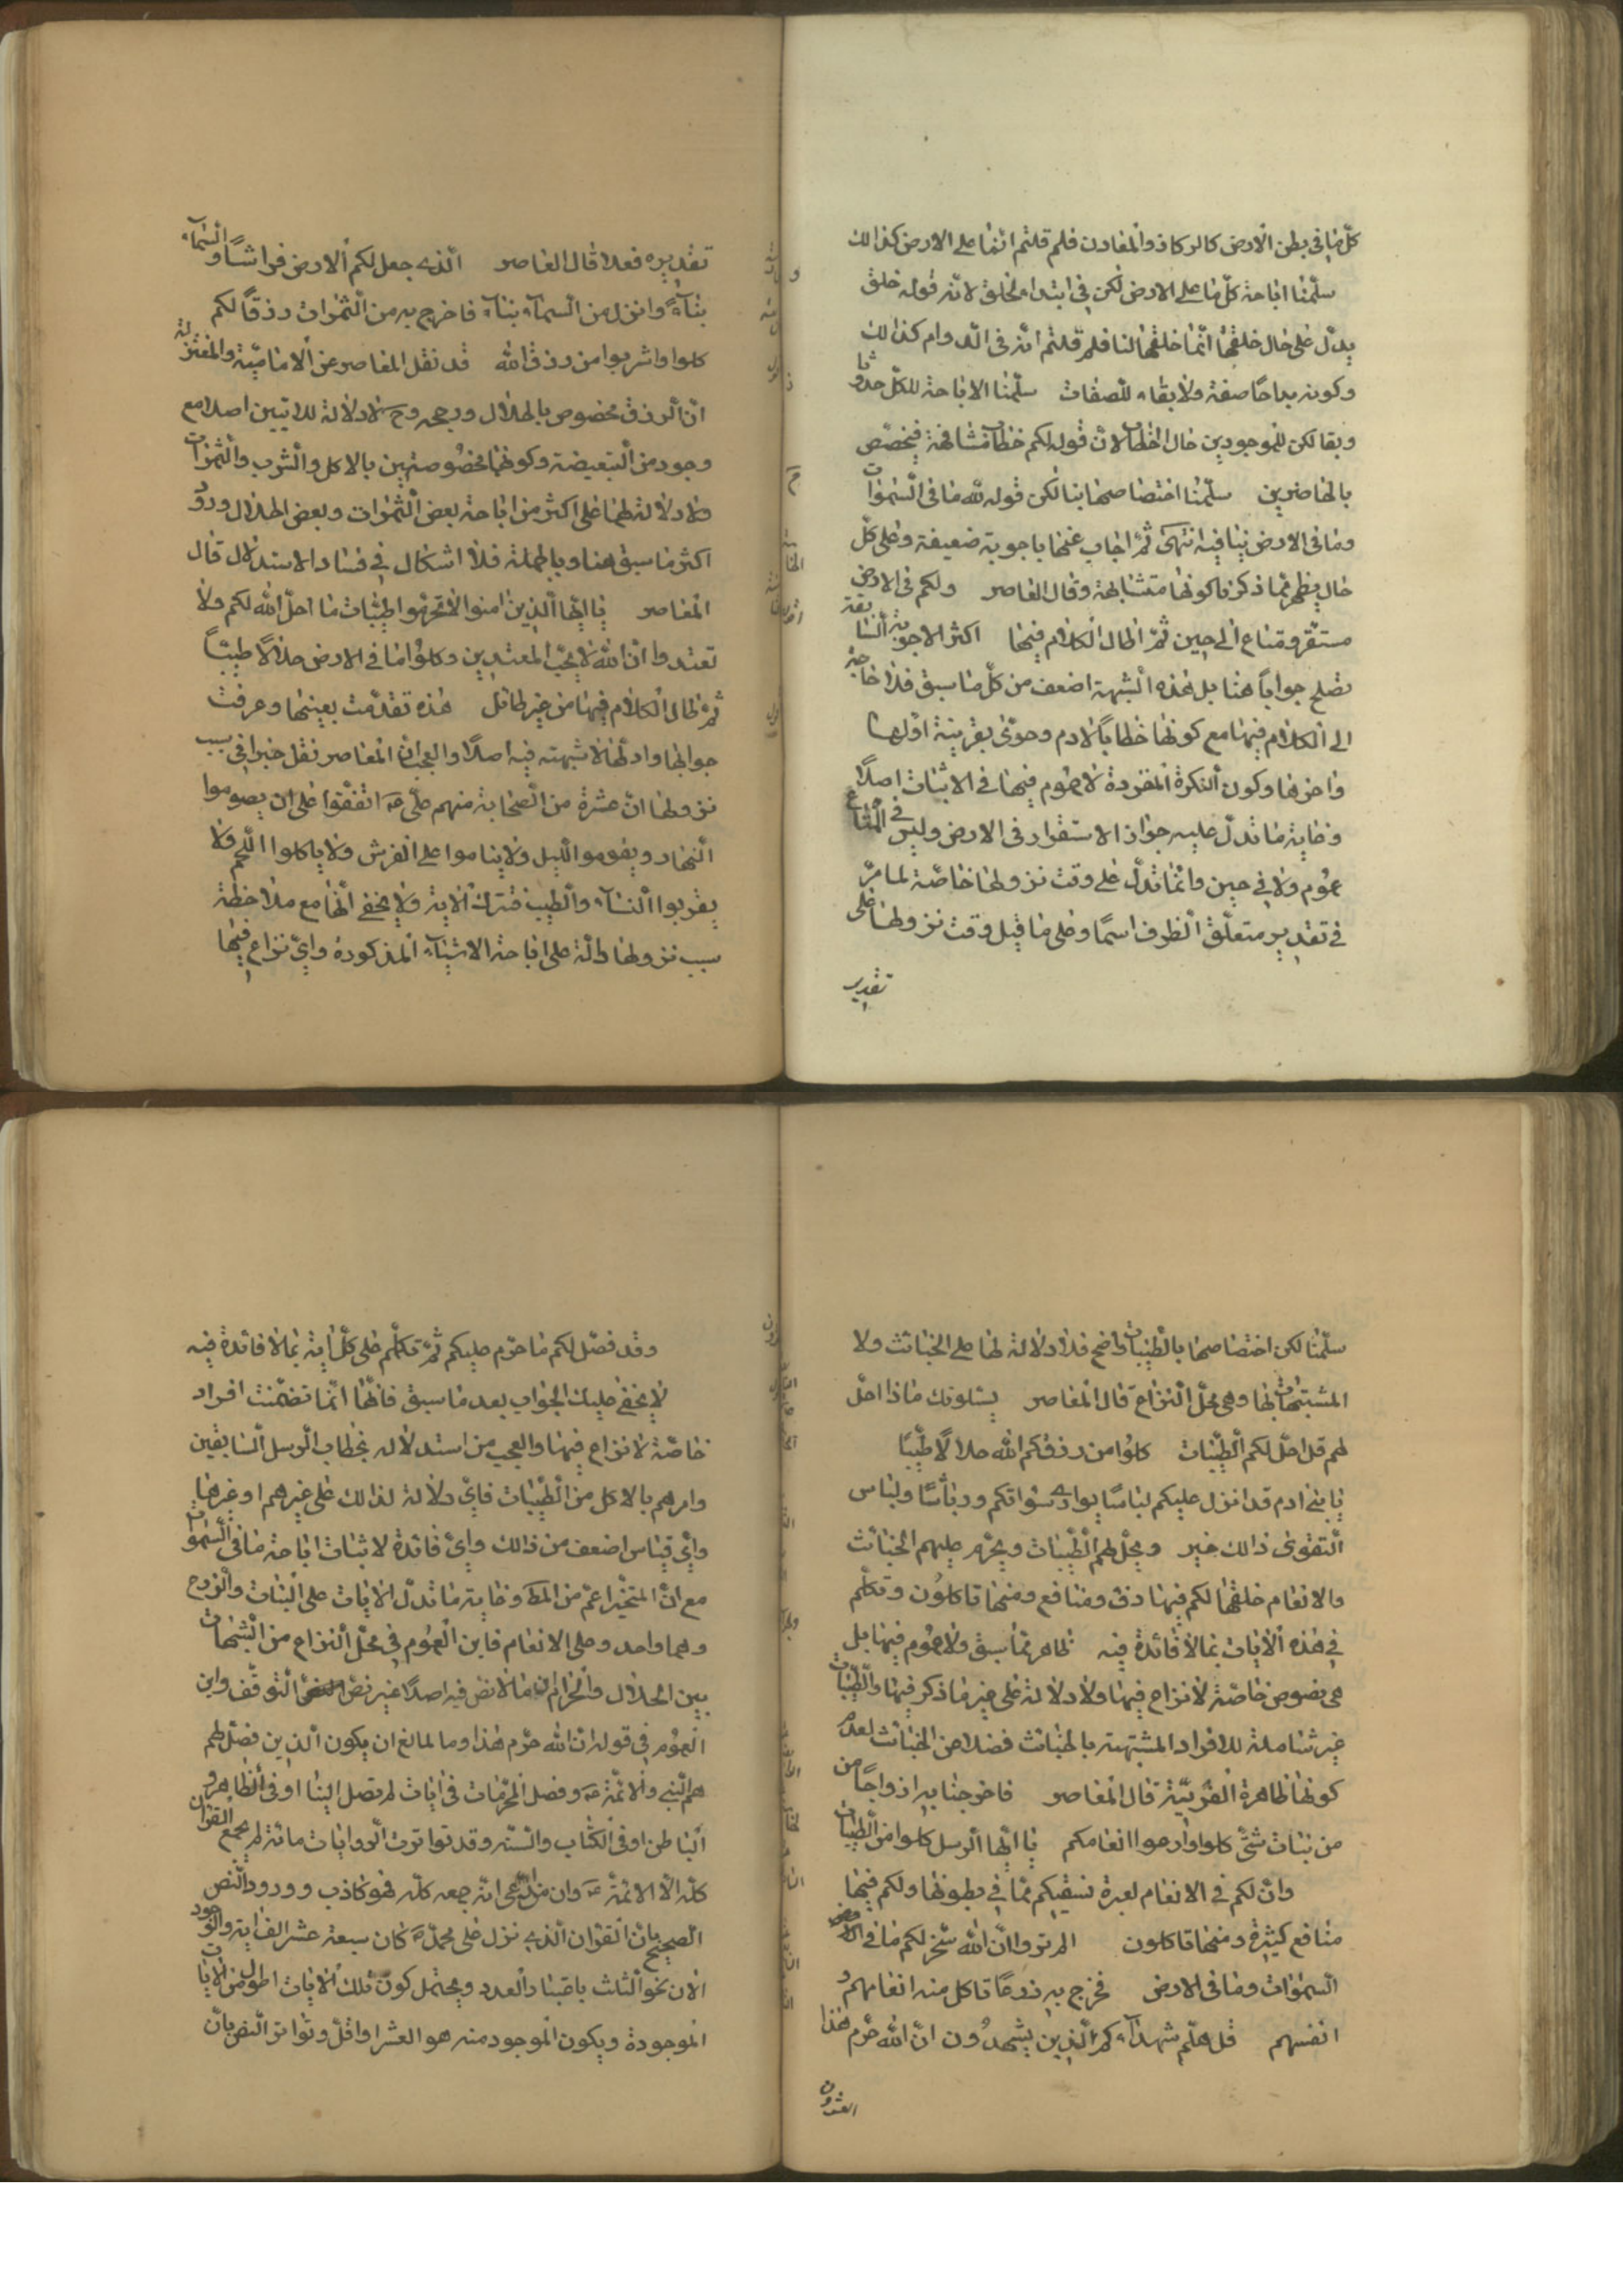 كلّ ما في بطن الارض كالركاز والمعادن فلم قلتم انّ ما على الارض كذالك
سلّمنا اباحة كلّ ما على الارض لكن في ابتداء الخلق لانّه قوله خلق
يدلّ على حال خلقها انّما خلقها لنا فلم قلتم انّه في الدوام كذالك
وكونه مباحًا صفة ولا بقاء للصفات سلّمنا الاباحة للكلّ حدوثا
وبقا لكن للموجودين حال الخطاب لانّ قوله لكم خطاب مشافهة فيختصّ
بالحاضرين سلّمنا اختصاصها بنا لكن قوله لله ما في السّموات
وما في الارض ينافيه انتهى ثمّ اجاب عنها باجوبة ضعيفة وعلى كلّ
حال يظهر ممّا ذكرنا كونها متشابهة وقال المعاصر ولكم في الارض
مستقّر ومتاع الى حين ثمّ اطال الكلام فيها اكثر الاجوبة السّابقة
تصلح جواباً هنا بل هذه الشّبهة اضعف من كلّ ما سبق فلا حاجة
الى الكلام فيها مع كونها خطاباً لادم وحوّى بقرينة اوّلها
واخرها وكون النّكرة المفردة لا عموم فيها في الاثبات اصلًا
وغاية ما تدلّ عليه جواز الاستقرار في الارض وليس في المتاع
عموم ولا في حين وانّما تدلّ على وقت نزولها خاصّة لما مرّ
في تقدير متعلّق الظرف اسمًا وعلى ما قبل وقت نزولها على
تقدير
تقديره فعلا قال المعاصر الّذي جعل لكم الارض فراشًا والسّماء
بناءً وانزل من السّماء بناء فاخرج به من الثّمرات رزقاً لكم
كلوا واشربوا من رزق الله قد نقل المعاصر عن الاماميّة والمعتزلة
انّ الرزق مخصوص بالحلال ورجحه وح لا دلالة للايتين اصلا مع
وجود من التّبعيضة وكونهما مخصوصتين بالاكل والشّرب والثّمرات
ولا دلالة لهما على اكثر من اباحة بعض الثّمرات وبعض الحلال ورود
اكثر ما سبق هنا وبالجملة فلا اشكال في فساد الاستدلال قال
المعاصر يا ايّها الّذين امنوا لا تحرّموا طيّبات ما احلّ الله لكم ولا
تعتدوا انّ الله لا يحبّ المعتدين وكلوا ما في الارض حلالًا طيّباً
ثمّ اطال الكلام فيها من غير طائل هذه تقدّمت بعينها وعرفت
جوابها وادلّتها لا شبهة فيه اصلًا والعجب انّ المعاصر نقل خبرا في سبب
نزولها انّ عشرة من الصّحابة منهم علّي ع اتّفقوا على ان يصوموا
النّهار ويقوموا اللّيل ولا يناموا على الفرش ولا ياكلوا اللّحم ولا
يقربوا النّساء والطّيب فنزلت الاية ولا يخفى انّها مع ملاحظة
سبب نزولها دالّة على اباحة الاشياء المذكورة وايّ نزاع فيها
سلّمنا لكن اختصاصها بالطّيبات واضح فلا دلالة لها على الخبائث ولا
المشتبهات بها وهي محلّ النّزاع قال المعاصر يسئلونك ماذا احلّ
لهم قل احلّ لكم الطّيّبات كلوا من رزقكم الله حلالًا طيّبًا
يا بني ادم قد انزل عليكم لباسًا يواري سواتكم ورياسًا ولباس
التّقوى ذالك خير ويحلّ لهم الطّيّبات ويحرّم عليهم الخبائث
والانعام خلقها لكم فيها دفؤ ومنافع ومنها تاكلون وتكلّم
في هذه الايات بما لا فائدة فيه ظاهر ممّا سبق ولا عموم فيها بل
هي نصوص خاصّة لا نزاع فيها ولا دلالة على غير ما ذكر فيها والطّيّبات
غير شاملة للافراد المشتبهة بالخباث فضلا عن الخبائث لعدم
كونها ظاهرة الفرديّة قال المعاصر فاخرجنا به ازواجًا من
من نبات شتّى كلوا وارعوا انعامكم يا ايّها الرسل كلوا من الطّيبات
وانّ لكم في الانعام لعبرة نسقيكم ممّا في بطونها ولكم فيها
منافع كثيرة ومنها تاكلون الم تروا انّ الله سخّر لكم ما في الارض
السّموات وما في الارض فخرج به زرعًا تاكل منه انعامهم و
انفسهم قل هلّم شهداءكم الّذين يشهدون انّ الله حرّم هذا
وقد فصّل لكم ما حرّم عليكم ثمّ تكلّم على كلّ اية بما لا فائدة فيه
لا يخفى عليك الجواب بعد ما سبق فانّها انّما تضمّنت افراد
خاصّة لا نزاع فيها والعجب من استدلاله بخطاب الرسل السّابقين
وامرهم بالاكل من الطّيّبات فايّ دلالة لذالك على غيرهم او غيرها
وايّ قياس اضعف من ذالك وايّ فائدة لاثبات اباحة ما في السّموات
مع انّ المتخيّر اعمّ من المط وغاية ما تدلّ الايات على النّبات والزّرع
وهما واحد وعلى الانعام فاين العموم في محلّ النّزاع من الشّبهات
بين الحلال والحرام ما لا نصّ فيه اصلًا غير نصّ التّوقّف واين
العموم في قوله انّ الله حرّم هذا وما المانع ان يكون الّذين فصّل لهم
هم النّبي والائمّة ع وفصل المحرّمات في ايات لم تصل الينا او في الظاهر و
الباطن او في الكتاب والسّنه وقد تواترت الرّوايات مانة لم يجمع القرآن
كلّه الّا الائمّة ع وان من ادّعى انّه جمعه كلّه فهو كاذب وورود النّص
الصّحيح بانّ القران الّذي نزل على محمّد ص كان سبعة عشر الف اية والموجود
الان نحو الثلث باعتبار العدد ويحتمل كون تلك الايات اطول من الايات
الموجودة ويكون الموجود منه هو العشر او اقلّ وتواتر النّص بانّ